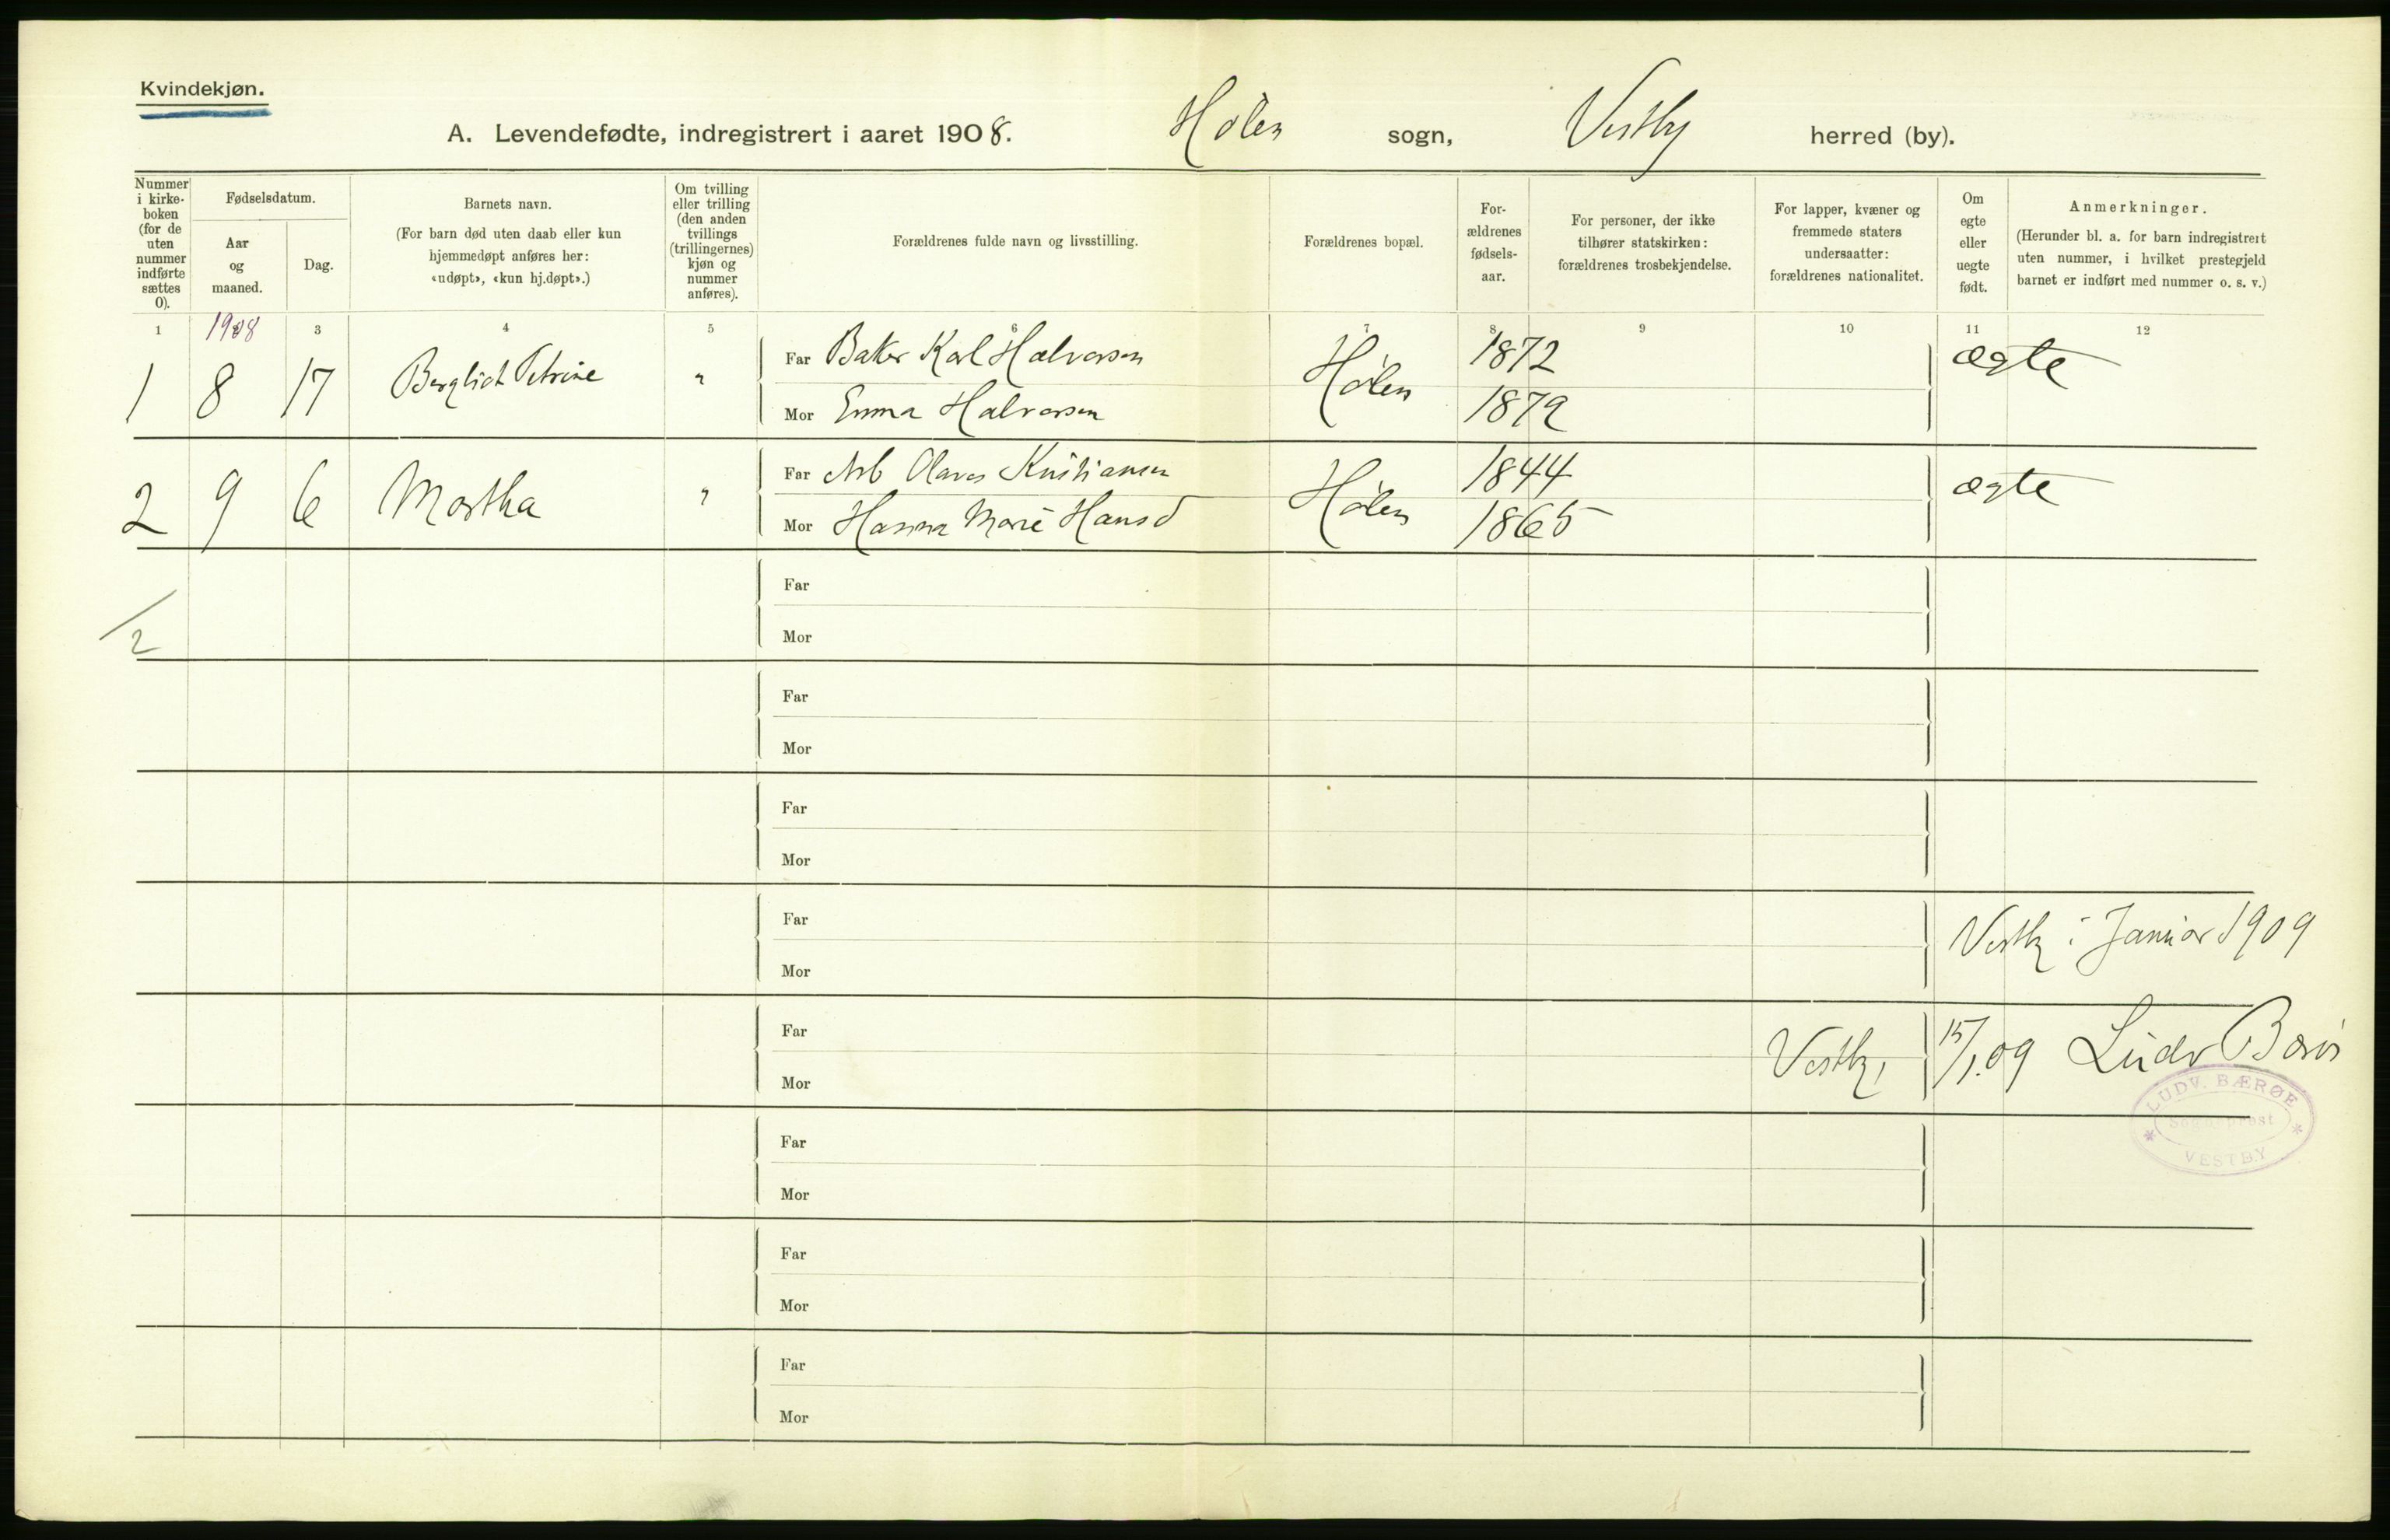 Kvindekjøn.
A. Levendefødte, indregistrert i aaret 1908. Hølen sogn, Vestby herred (by).
Nummer i kirke-boken (for de uten nummer indførte sættes 0).
Fødselsdatum.
Aar og maaned.
Dag.
Barnets navn.
(For barn død uten daab eller kun hjemmedøpt anføres her: «udøpt», «kun hj.døpt».)
Om tvilling eller trilling (den anden tvillings (trillingernes) kjøn og nummer anføres).
Forældrenes fulde navn og livsstilling.
Forældrenes bopæl.
For-ældrenes fødsels-aar.
For personer, der ikke tilhører statskirken: forældrenes trosbekjendelse.
For lapper, kvæner og fremmede staters undersaatter: forældrenes nationalitet.
Om egte eller uegte født.
Anmerkninger.
(Herunder bl. a. for barn indregistrert uten nummer, i hvilket prestegjeld barnet er indført med nummer o. s. v.)
1 3 4 5 6 7 8 9 10 11 12
1908
1 8 17 Bergliot Petrine " Far Baker Karl Halvorsen Hølen 1872 ægte
Mor Emma Halvorsen 1879
2 9 6 Martha " Far Arb Olaves Kristiansen Hølen 1844 ægte
Mor Hanna Marie Hansd 1865
Far
2
Mor
Far
Mor
Far
Mor
Far
Vestby i Januar 1909
Mor
Far
Vestby, 15/1.09 Ludv Bærø
Mor
LUDV. BÆRØE
Sogneprest
VESTBY
Far
Mor
Far
Mor
Far
Mor